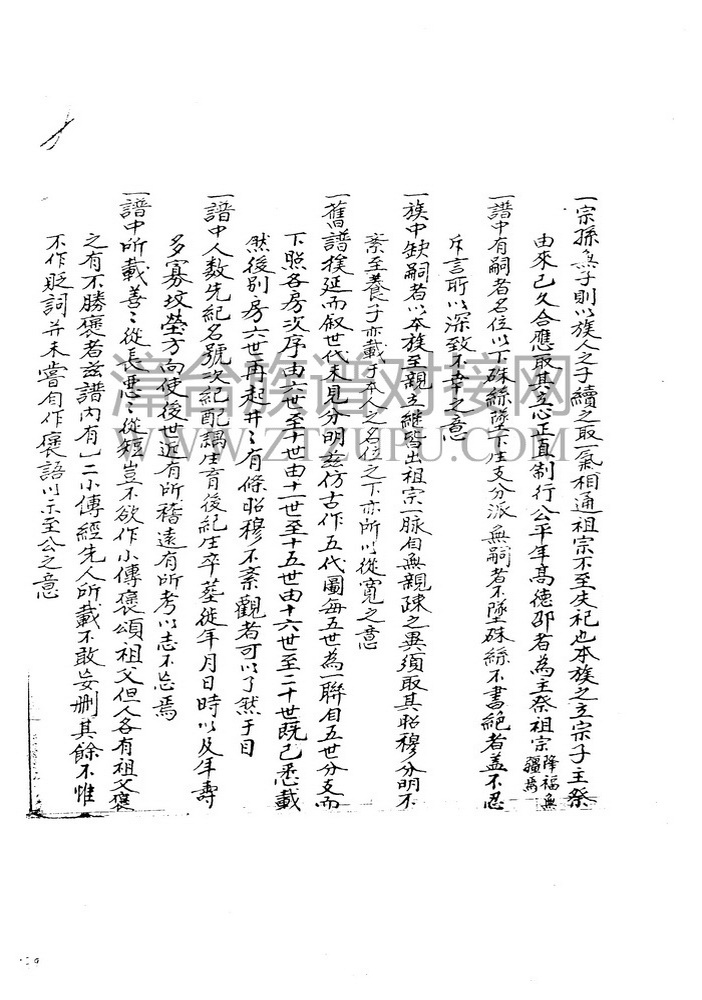 一宗孫無子則以族人之子續之取一氣相通祖宗不至失祀也本族之立宗子主祭
由來已久合應取其立心正直制行公平年高德邵者為主祭祖宗降福無疆焉
一譜中有嗣者名位以下硃絲墜下生支分派無嗣者不墜硃絲不書絕者盖不忍
斥言所以深致不幸之意
一族中缺嗣者以本族至親立継皆出祖宗一脉自無親疎之異須取其昭穆分明不
紊至養子亦載于本人之名位之下亦所以從寬之意
一舊譜撲延而叙世代未見分明兹仿古作五代圖每五世為一聯自五世分支而
下照各房次序由六世至十世由十一世至十五世由十六世至二十世既已悉載
然後別房六世再起井々有條昭穆不紊觀者可以了然于目
一譜中人数先紀名號次紀配耦生育後紀生卒葬徙年月日時以及年壽
多寡坟塋方向使後世近有所稽遠有所考以志不忘焉
一譜中所載善々從長惡々從短豈不欲作小傳褒頌祖父但人各有祖父褒
之有不勝褒者兹譜內有一二小傳經先人所載不敢妄删其餘不惟
不作貶詞并未嘗自作褒語以示至公之意
津合族谱对接网
WWW.ZTZUPU.COM